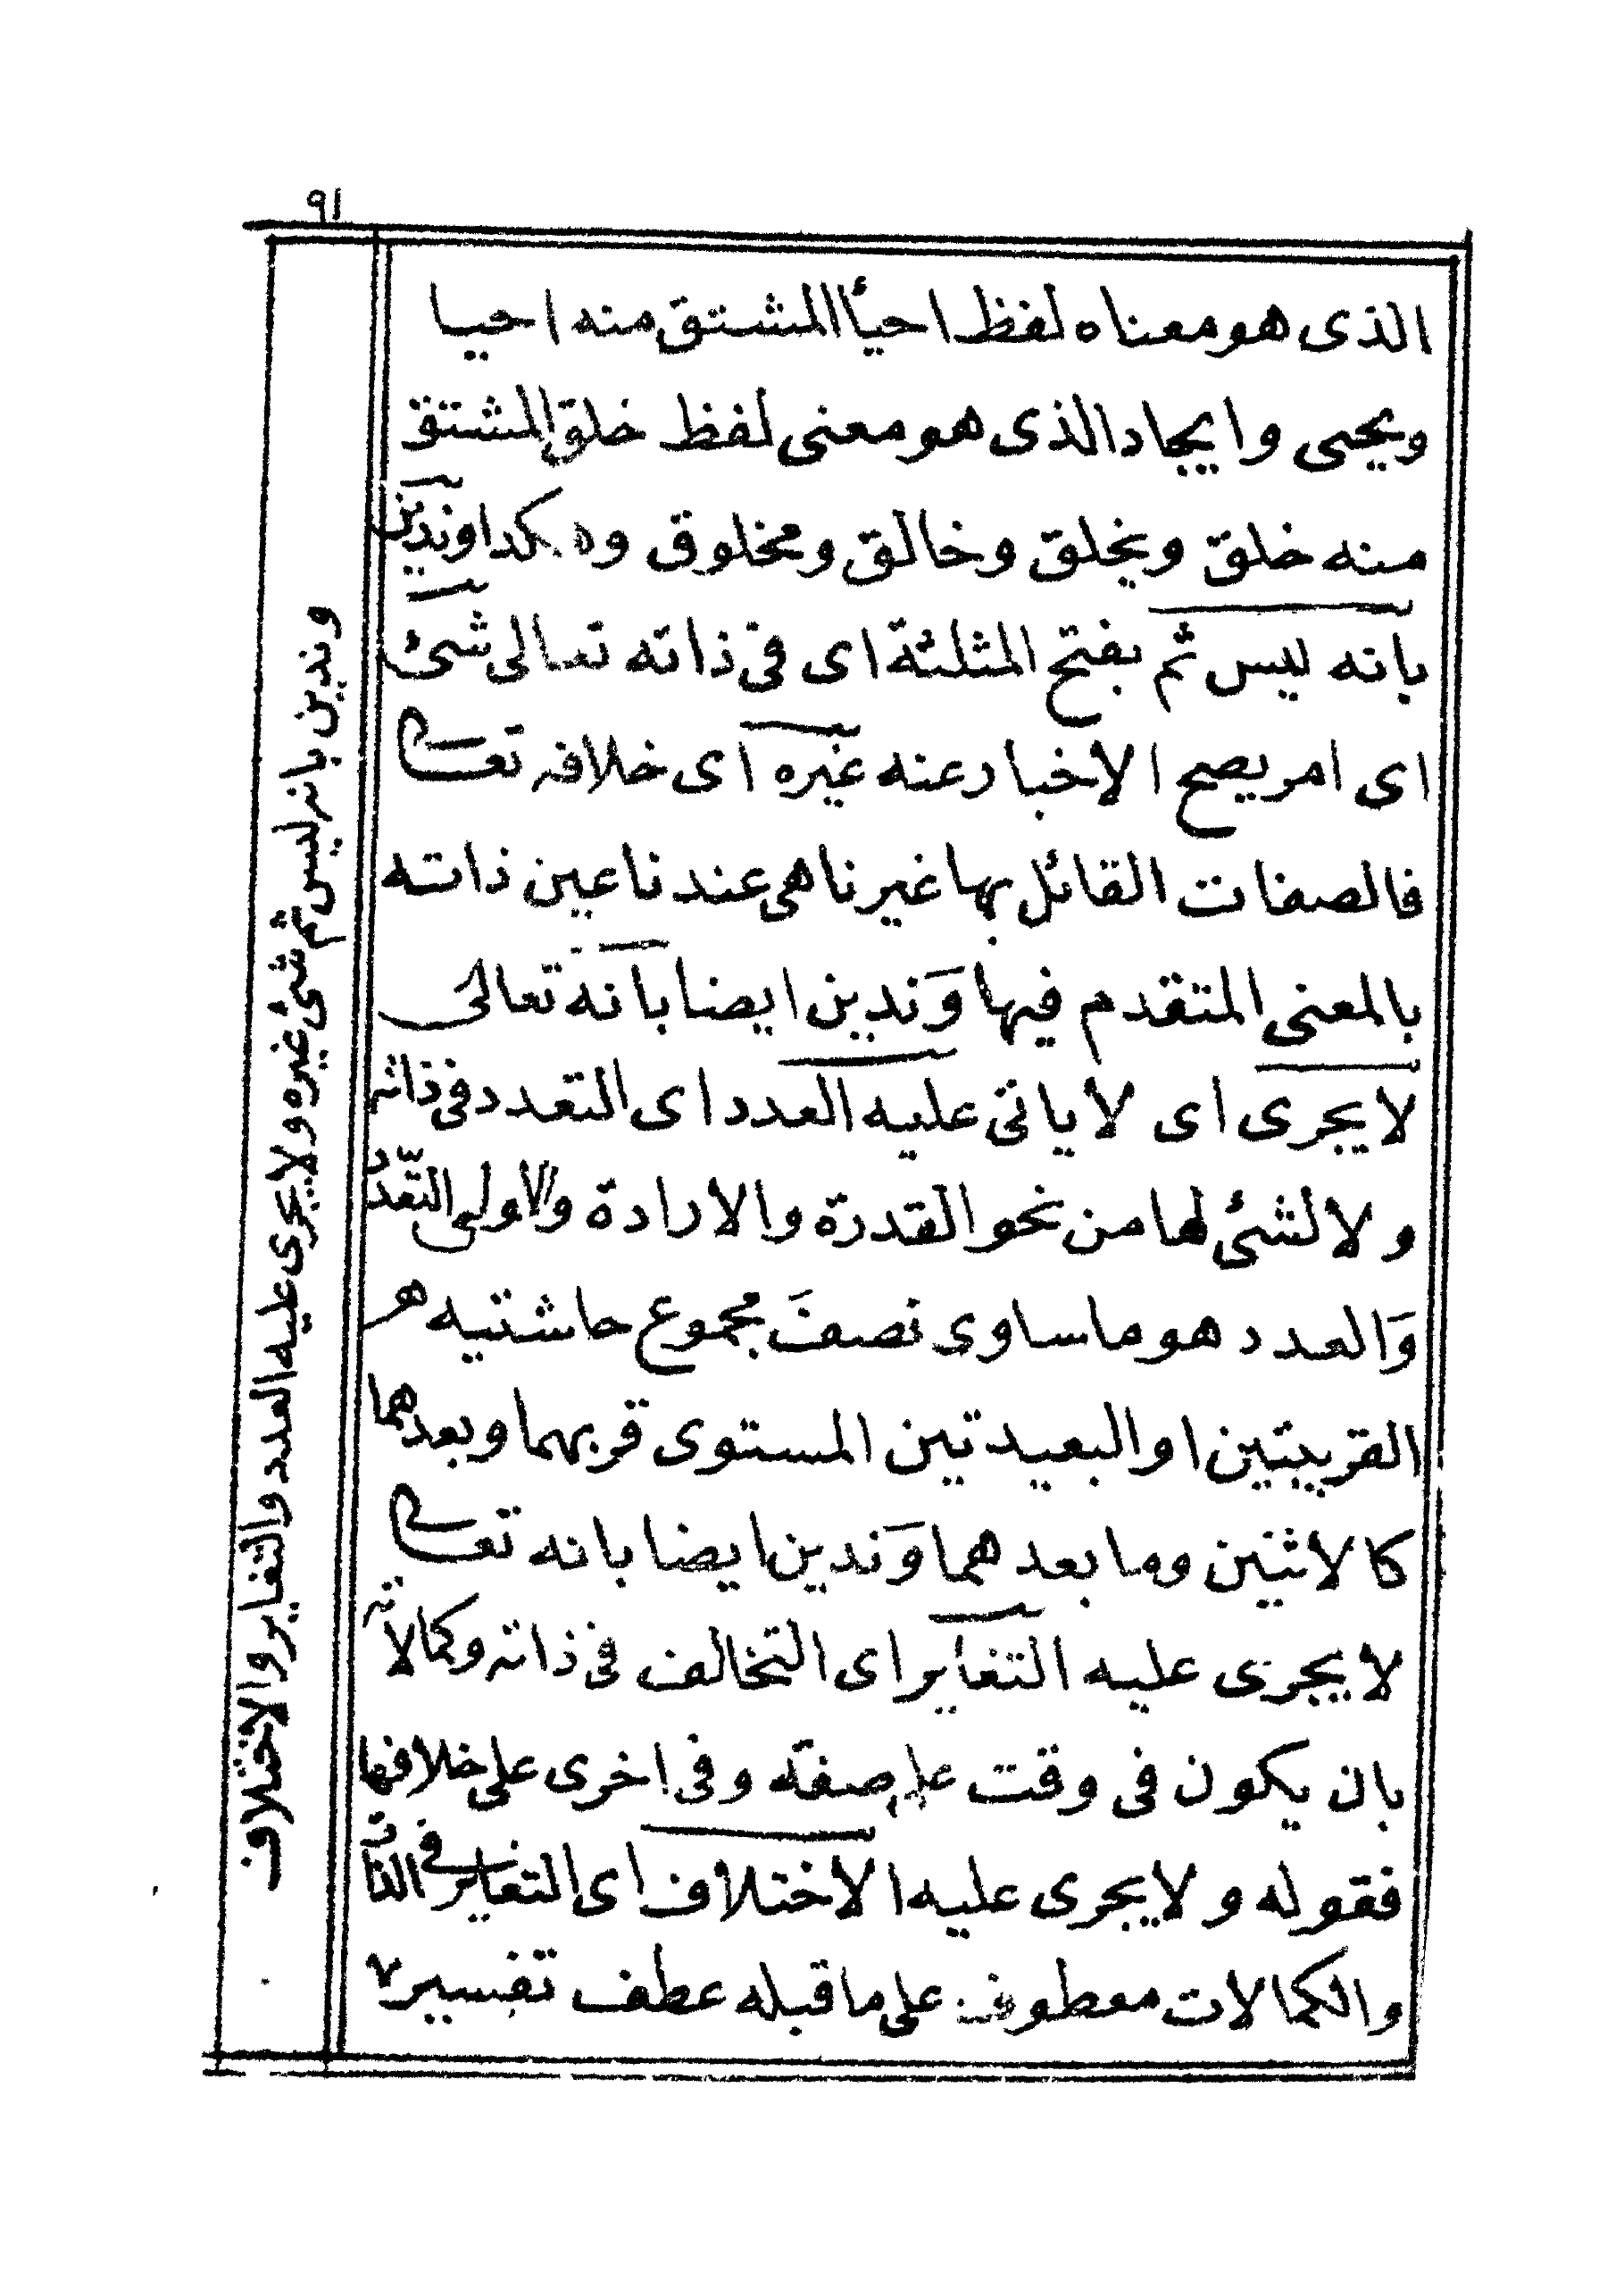 ٩١
الذى هو معناه لفظ احيأ المشتق منه احيا
ويحيى وايجاد الذى هو معنى لفظ خلق المشتق
منه خلق ويخلق وخالق ومخلوق وهكذا وندين
بانه ليس ثم بفتح المثلثة اى فى ذاته تعالى شئ
اى امر يصح الاخبار عنه غيره اى خلافه تعالى
فالصفات القائل بها غيرنا هى عندنا عين ذاته
بالمعنى المتقدم فيها وَندين ايضا بانه تعالى
لا يجرى اى لا ياتى عليه العدد اى التعدد فى ذاته
ولا لشئ لها من نحو القدرة والارادة والاولى التعدّد
وَالعدد هو ما ساوى نصفَ مجموع حاشتيه
القريبتين او البعيدتين المستوى قربهما وبعدهما
كالاثنين وما بعدهما وَندين ايضا بانه تعالى
لا يجرى عليه التغاير اى التخالف فى ذاته وكمالاته
بان يكون فى وقت على صفة وفى اخرى على خلافها
فقوله ولا يجرى عليه الاختلاف اى التغاير فى الذات
والكمالات معطوف على ما قبله عطف تفسير
وندين بانه ليس ثم شئ غيره ولا يجرى عليه العدد والتغاير والاختلاف